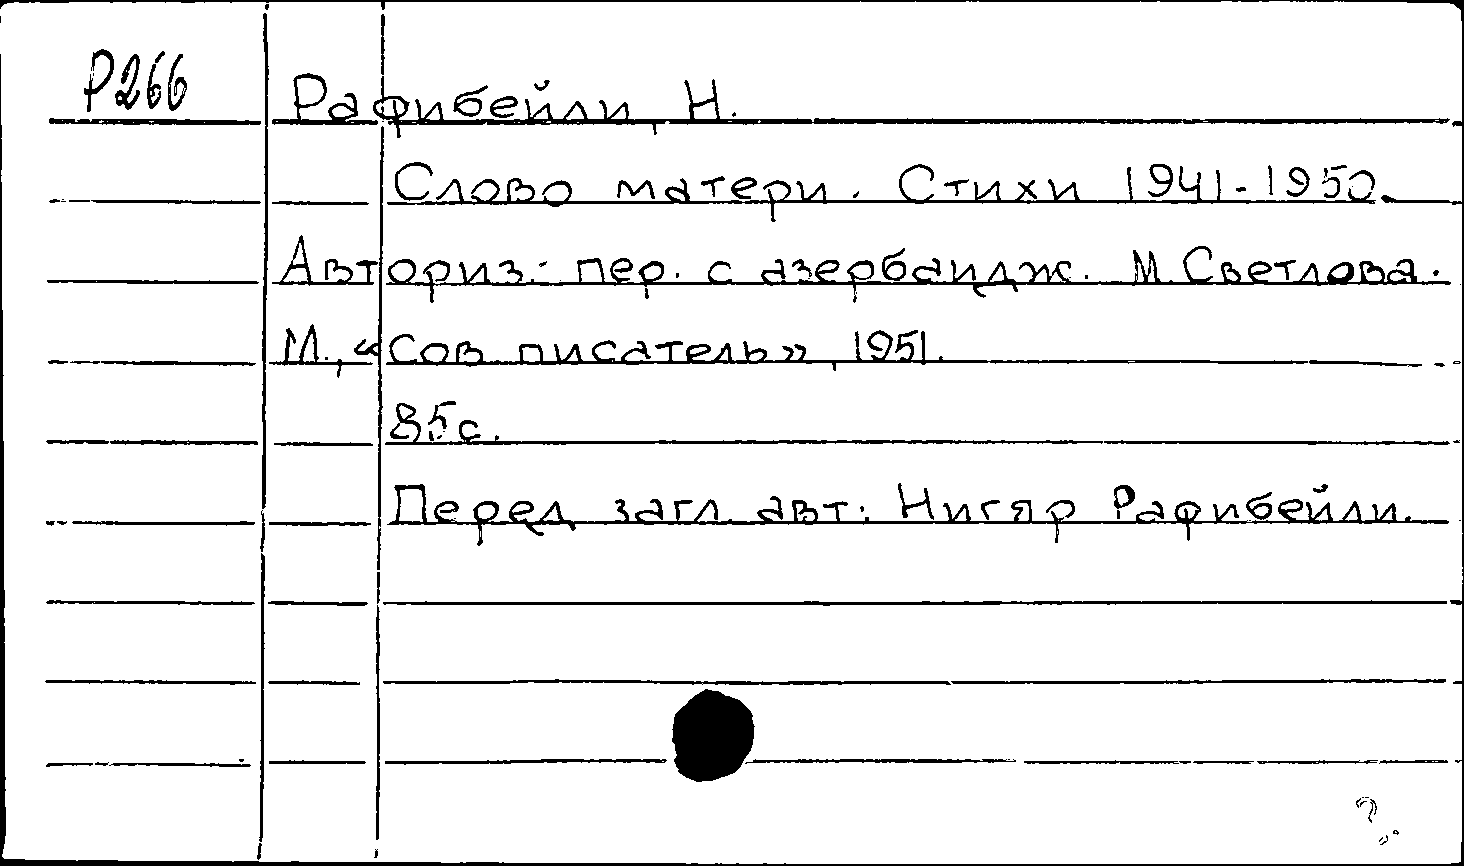 Р266
Рафибейли, Н.
Слово матери. Стихи 1941-1950.
Авториз. пер. с азербайдж. М. Светлова.
М., «Сов писатель», 1951.
85с.
Перед загл. авт: Нигяр Рафибейли.